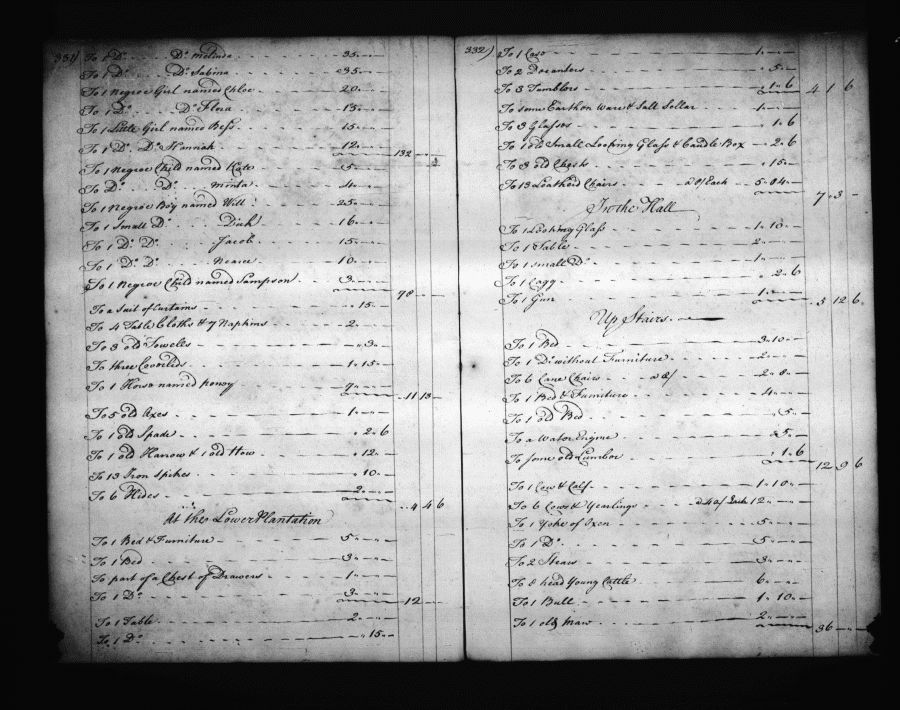 331)
To 1 Do. Do. Melinda 35
To 1 Do. Do. Sabina 35
To 1 Negroe Girl named Chloe 20
To 1 Do. Do. Flora 15
To 1 Little Girl named Bess 15
To 1 Do. Do. Hannah 12
132
To 1 Negroe Child named Kate 5
To Do. Do. Minta 4
To 1 Negroe Boy named Will 25
To 1 Small Do. Dick 16
To 1 Do. Do. Jacob 15
To 1 Do. Do. 10
To 1 Negroe Child named Sampson 3
78
To a Suit of Curtains 15
To 4 Table Cloths & 7 Napkins 2
To 3 old Towels 3
To three Coverlids 1 15
To 1 Horse named 7
11 13
To 5 old Axes 1
To 1 old Spade 2 6
To 1 old Harrow & 1 old How 12
To 13 Iron Spikes 10
To 6 Hides 2
4 4 6
At the Lower Plantation
To 1 Bed & Furniture 5
To 1 Bed 3
To part of a Chest of Drawers 1
To 1 Do. 3
12
To 1 Table 2
To 1 Do. 15
332)
To 1 Case 1
To 2 Decanters 5
To 3 Tumblers 1 6
4 1 6
To some Earthen Ware & Salt Sellar 1
To 3 Glasses 1 6
To 1 old Small Looking Glass & Candle Box 2 6
To 3 old Chests 15
To 13 Leathed Chairs a 8/ Each 5 04
7 3
In the Hall
To 1 Looking Glass 1 10
To 1 Table 2
To 1 small Do. 1
To 1 Cagg 2 6
To 1 Gun 1
5 12 6
Up Stairs
To 1 Bed 3 10
To 1 Do. without Furniture 2
To 6 Cane Chairs a 8/ 2 8
To 1 Bed & Furniture 4
To 1 old Bed 5
To a Water Engine 5
To some old Lumber 1 6
12 9 6
To 1 Cow & Calf 1 10
To 6 Cows & Yearlings a 40/ Each 12
To 1 Yoke of Oxen 5
To 1 Do. 5
To 2 Stears 3
To 8 head Young Cattle 6
To 1 Bull 1 10
To 1 old Mare 2
36